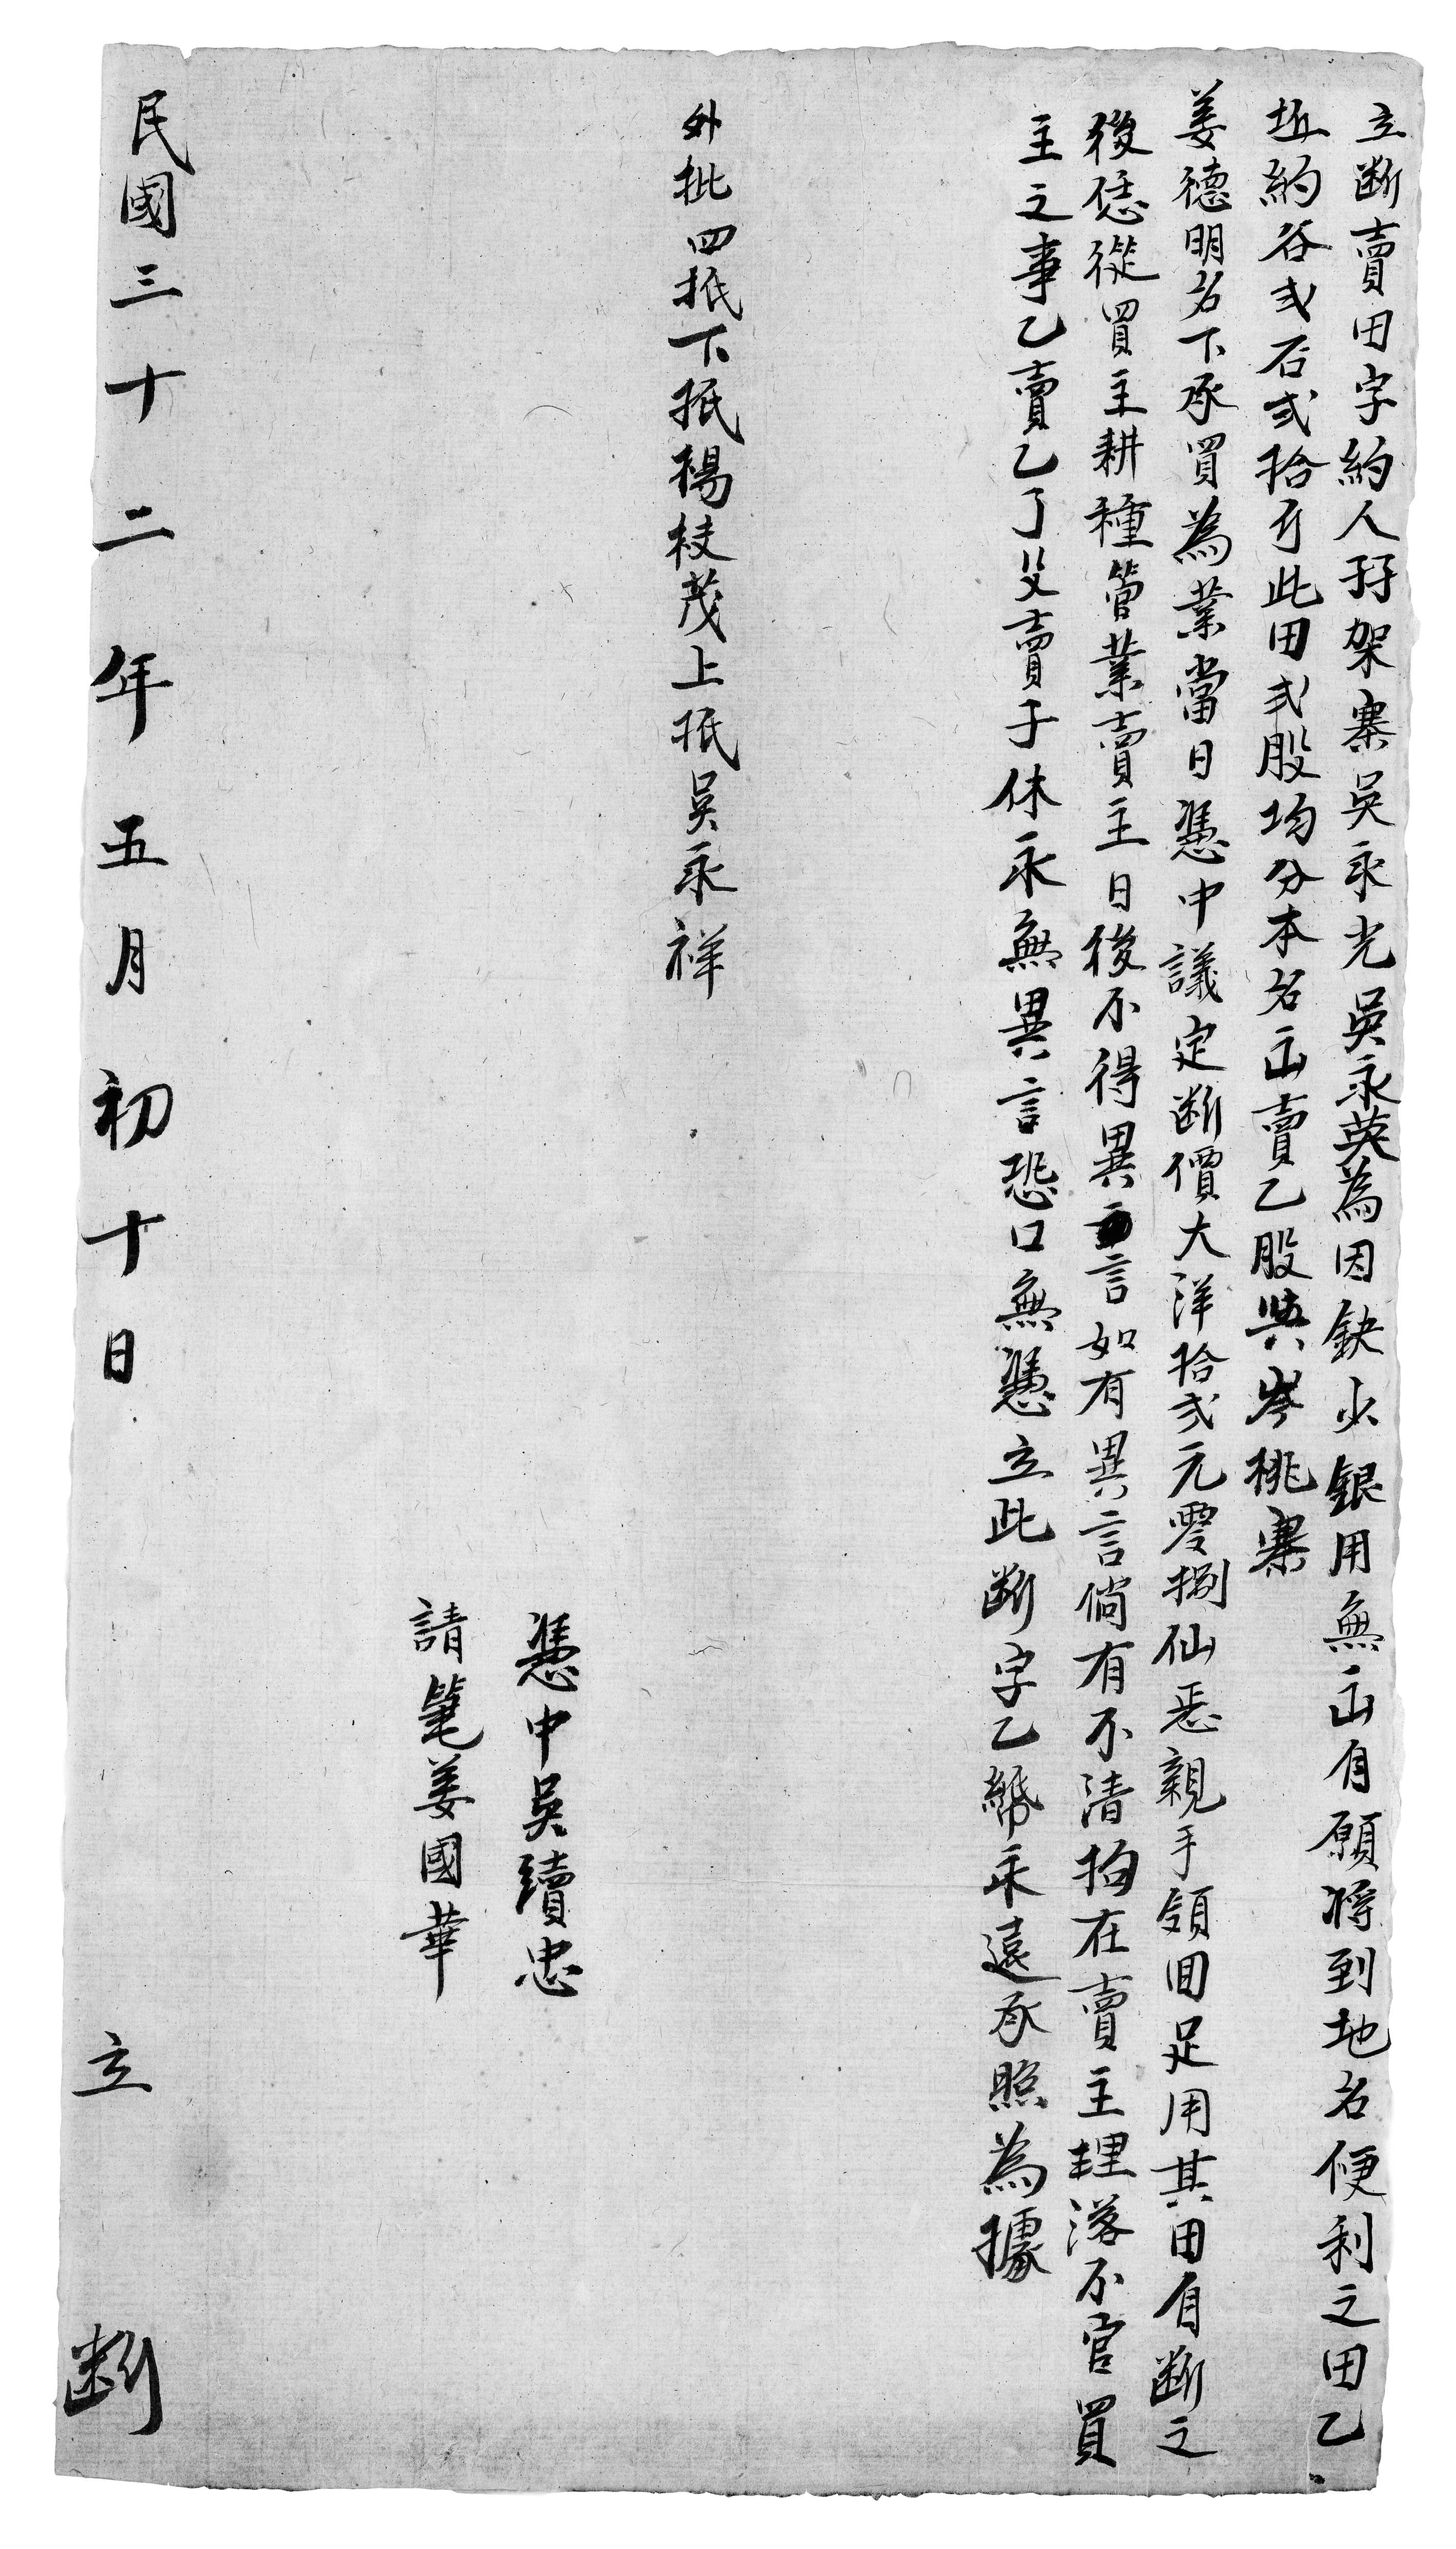 立斷賣田字約人孖架寨吳永光吳永英為因缺少銀用無出自願將到地名便利之田乙
坵約谷弍石弍拾斤此田弍股均分本名出賣乙股與岑桃寨
姜德明名下承買為業當日憑中議定斷價大洋拾弍元零捌仙丟親手領回足用其田自斷之
後恁從買主耕種管業賣主日後不得異言如有異言倘有不清拘在賣主理落不官買
主之事乙賣乙了父賣子休永無異言恐口無憑立此斷字乙紙永遠承照為據
外批四抵下抵楊枝茂上抵吳永祥
憑中吳續忠
請筆姜國華
民國三十二年五月初十日 立 斷